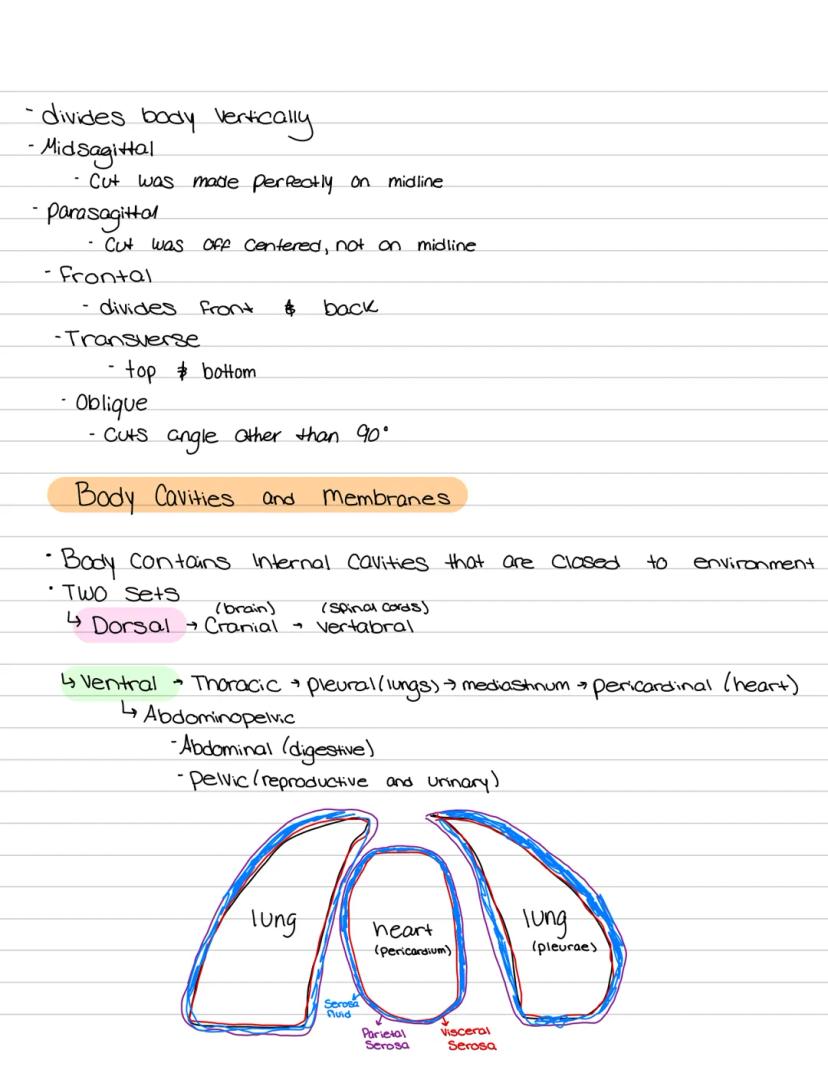 - divides body vertically
- Midsagittal
- Cut was made perfectly on midline
- Parasagittal
- Cut was off centered, not on midline
- Frontal
- divides front & back
- Transverse
- top & bottom
- Oblique
- cuts angle other than 90°
Body Cavities and Membranes
• Body contains internal cavities that are closed to environment
• Two sets
(brain) (spinal cords)
↳ Dorsal → Cranial → vertabral
↳ Ventral → Thoracic → pleural (lungs) → mediastinum → pericardinal (heart)
↳ Abdominopelvic
- Abdominal (digestive)
- Pelvic (reproductive and urinary)
lung
heart
(pericardium)
lung
(pleurae)
Serosa
fluid
Parietal
Serosa
Visceral
Serosa